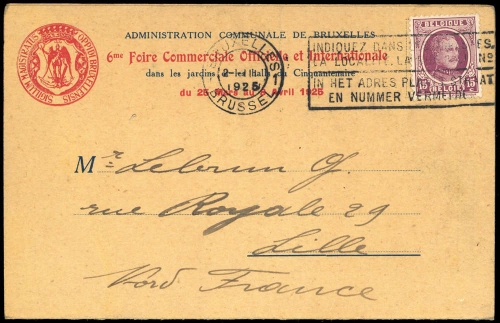 ADMINISTRATION COMMUNALE DE BRUXELLES
6me Foire Commerciale Officielle et Internationale
dans les jardins et Halls du Cinquantenaire
du 25 Mars au 8 Avril 1925
BRUXELLES 1
1925
BRUSSEL
INDIQUEZ DANS
LA LOCAL
IN HET ADRES PLAATS
EN NUMMER VERMELDEN
BELGIQUE
15 15
BELGIE
Mr Lebrun G.
rue Royale 29
Lille
Nord France